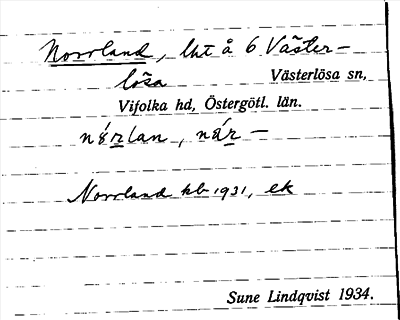 Norrland, lht å 6 Väster-
lösa Västerlösa sn,
Vifolka hd, Östergötl. län.
Norrland kb 1931, ek
Sune Lindqvist 1934.